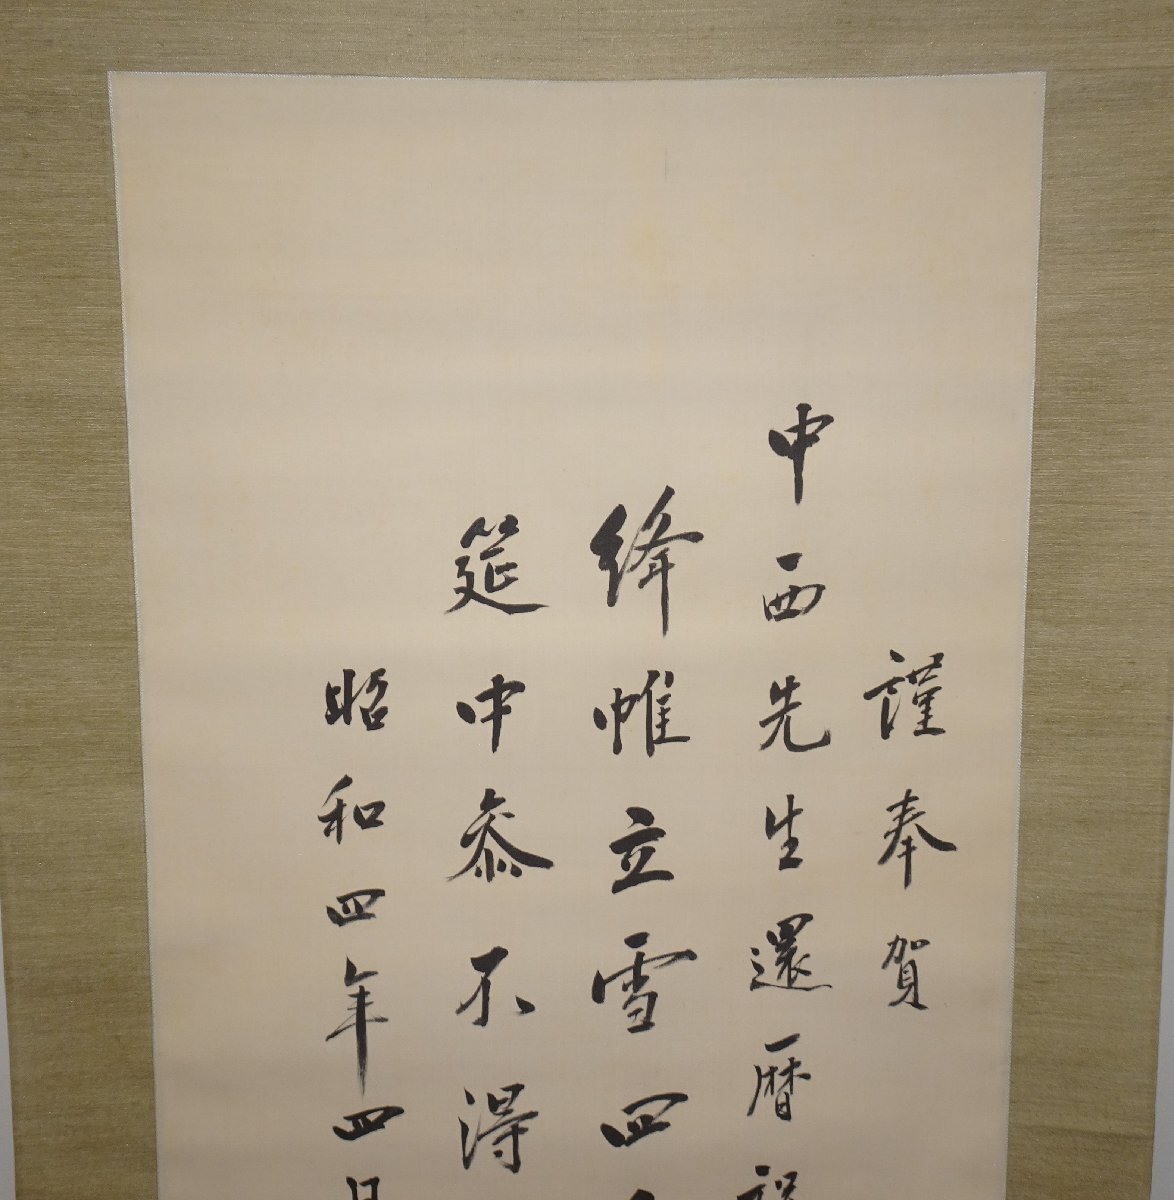 謹奉賀
中西先生還暦
絳帷立雪四
筵中忝不得
昭和四年四月